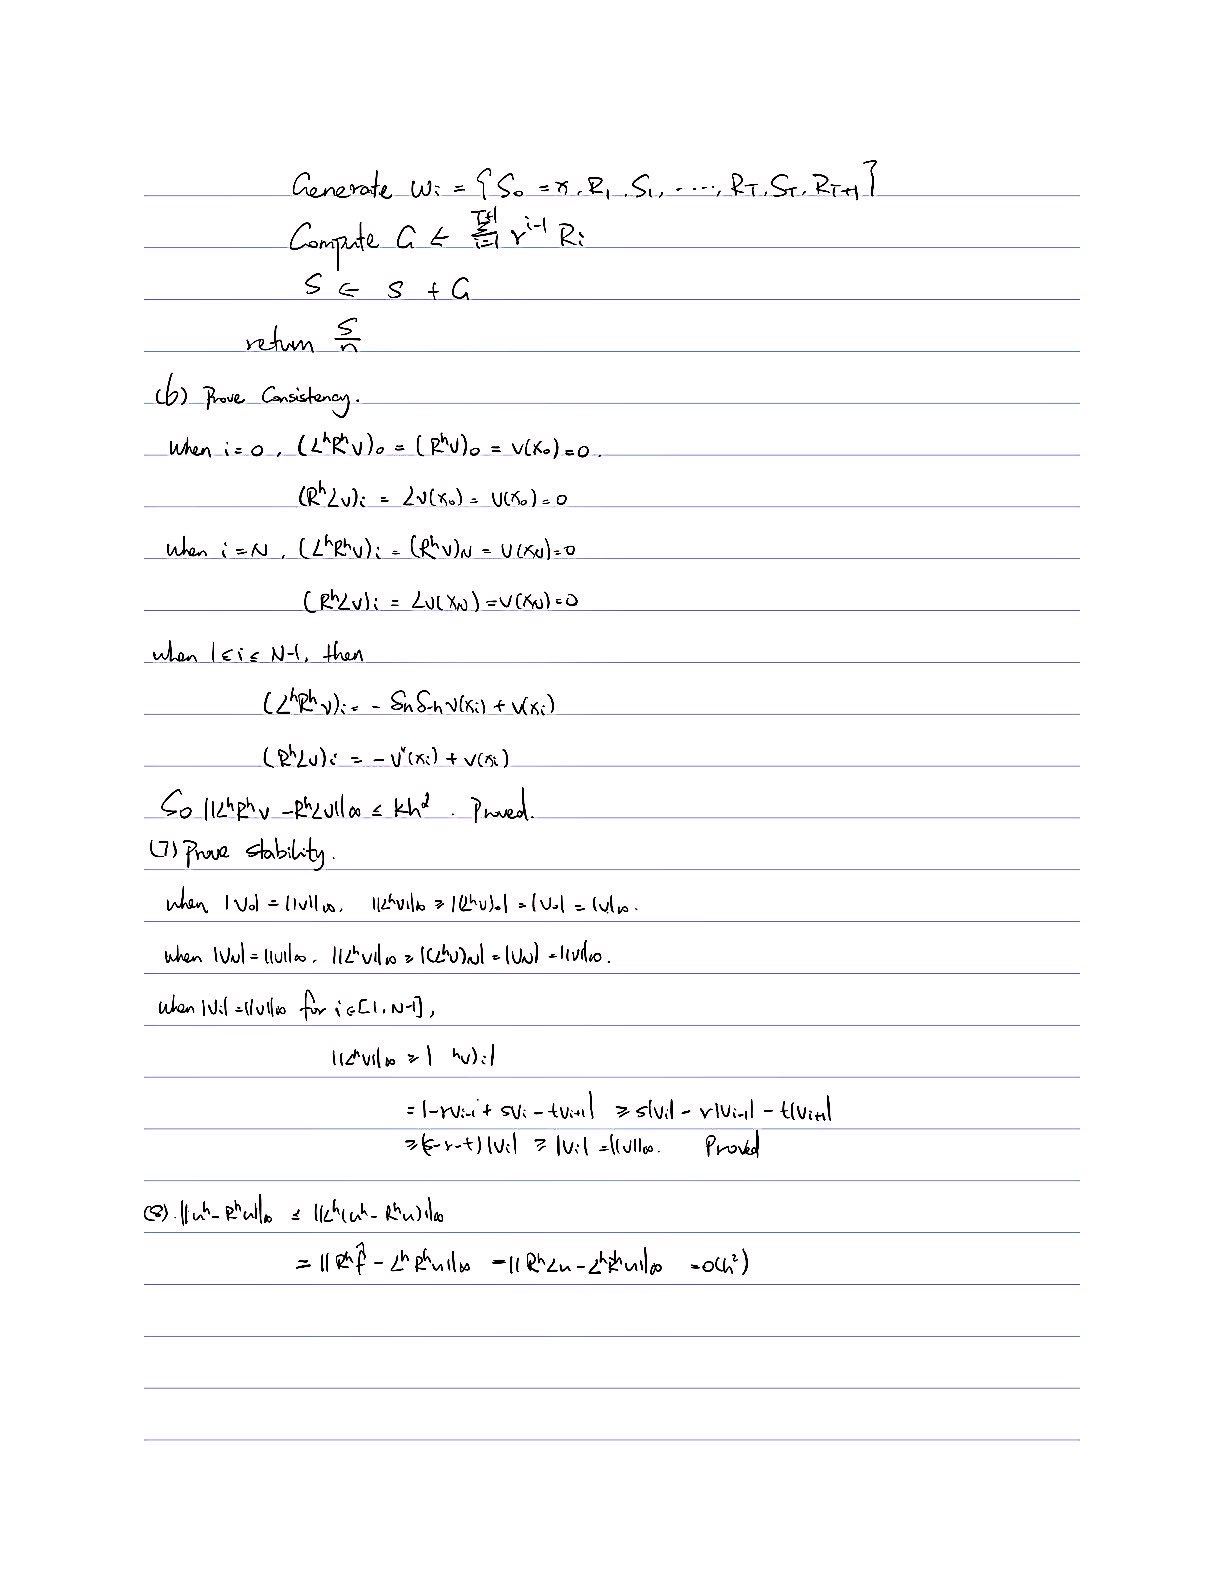 Generate Wi = {S₀ = x, R₁, S₁, ....., R_T, S_T, R_{T+1}}
Compute G ← Σ_{i=1}^{T+1} r^{i-1} Ri
S ← S + G
return S/n
(6) Prove Consistency.
When i=0, (LʰRʰv)₀ = (Rʰv)₀ = v(x₀)=0.
(RʰLv)i = Lv(x₀) = v(x₀)=0
When i=N, (LʰRʰv)i = (Rʰv)N = v(xN)=0
(RʰLv)i = Lv(xN) = v(xN)=0
when 1≤i≤N-1, then
(LʰRʰv)i = - δh δ-h v(xi) + v(xi)
(RʰLv)i = - v''(xi) + v(xi)
So ||LʰRʰv - RʰLv||∞ ≤ kh². Proved.
(7) Prove stability.
when |v₀| = ||v||∞, ||Lʰv||∞ ≥ |(Lʰv)₀| = |v₀| = |v|∞.
when |vN| = ||v||∞, ||Lʰv||∞ ≥ |(Lʰv)N| = |vN| = ||v||∞.
when |vi| = ||v||∞ for i∈[1, N-1],
||Lʰv||∞ ≥ | hv)i|
= |-rvi-1 + svi - tvi+1| ≥ s|vi| - r|vi-1| - t|vi+1|
≥(s-r-t)|vi| ≥ |vi| = ||v||∞. Proved
(8). ||uʰ - Rʰu||∞ ≤ ||Lʰ(uʰ - Rʰu)||∞
= ||Rʰf̂ - LʰRʰu||∞ = ||RʰLu - LʰRʰu||∞ = O(h²)